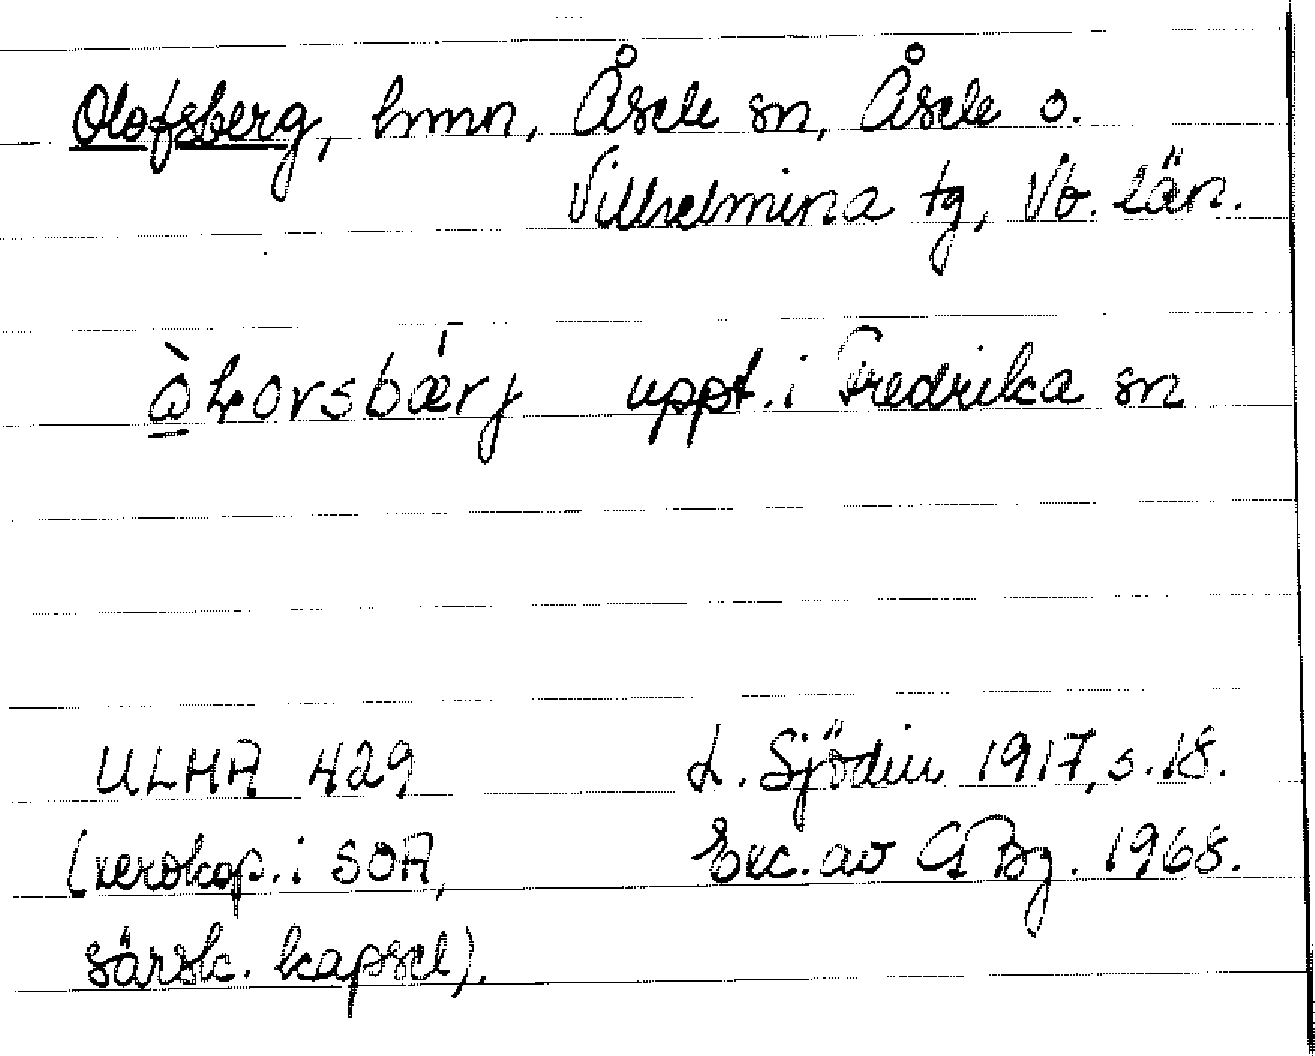 Olofsberg, hmn, Åsele sn, Åsele o.
Vilhelmina tg, Vb. län.
uppt. i Fredrika sn
ULMA 429 L. Sjödin 1917, s. 18.
(xerokop. i SOA, Exc. av GBg. 1968.
särsk. kapsel).